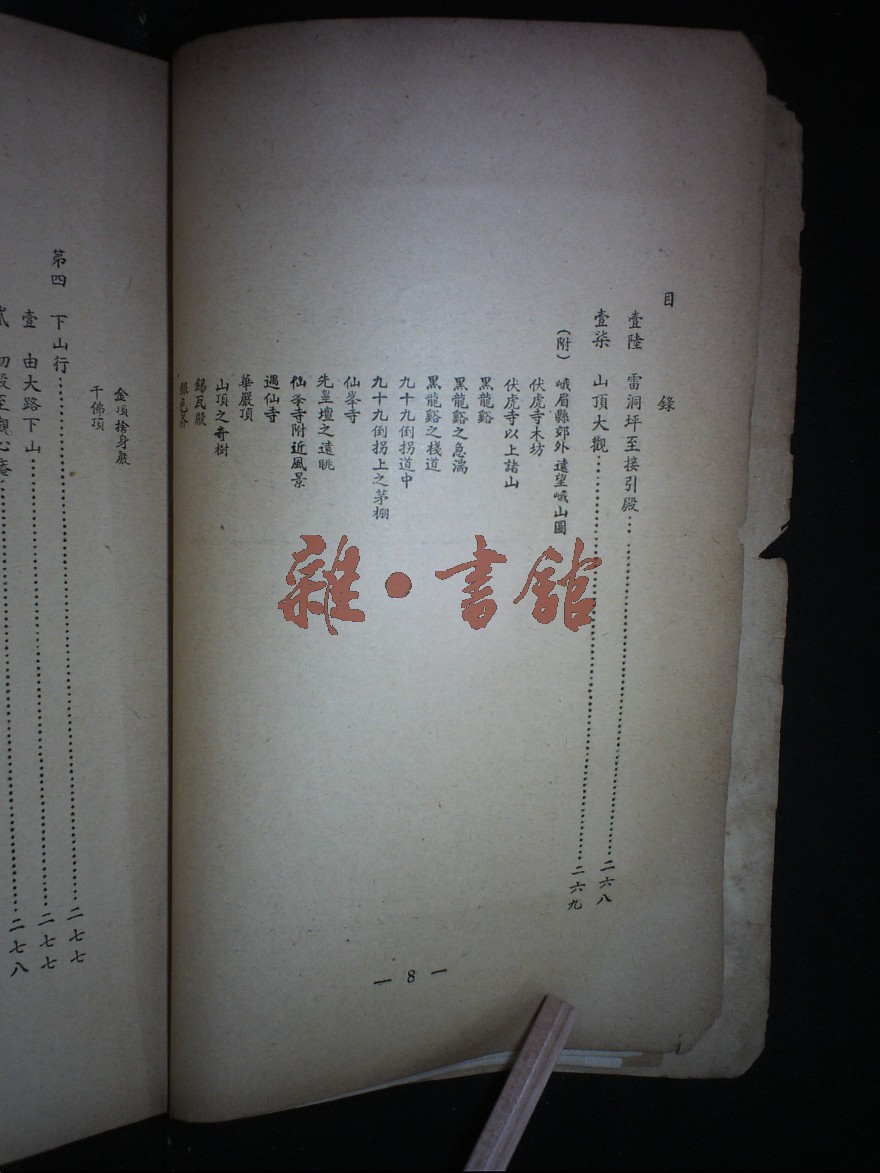 目錄
壹陸　雷洞坪至接引殿……二六八
壹柒　山頂大觀……二六九
（附）　峨眉縣郊外遠望峨山圖
伏虎寺木坊
伏虎寺以上諸山
黑龍谿
黑龍谿之急湍
黑龍谿之棧道
九十九倒拐道中
九十九倒拐上之茅棚
仙峯寺
先皇壇之遠眺
仙峯寺附近風景
遇仙寺
華嚴頂
山頂之奇樹
錫瓦殿
銀色界
— 8 —
雜·書館
金頂捨身巖
千佛頂
第四　下山行……二七七
壹　由大路下山……二七七
貳　初殿至觀心庵……二七八